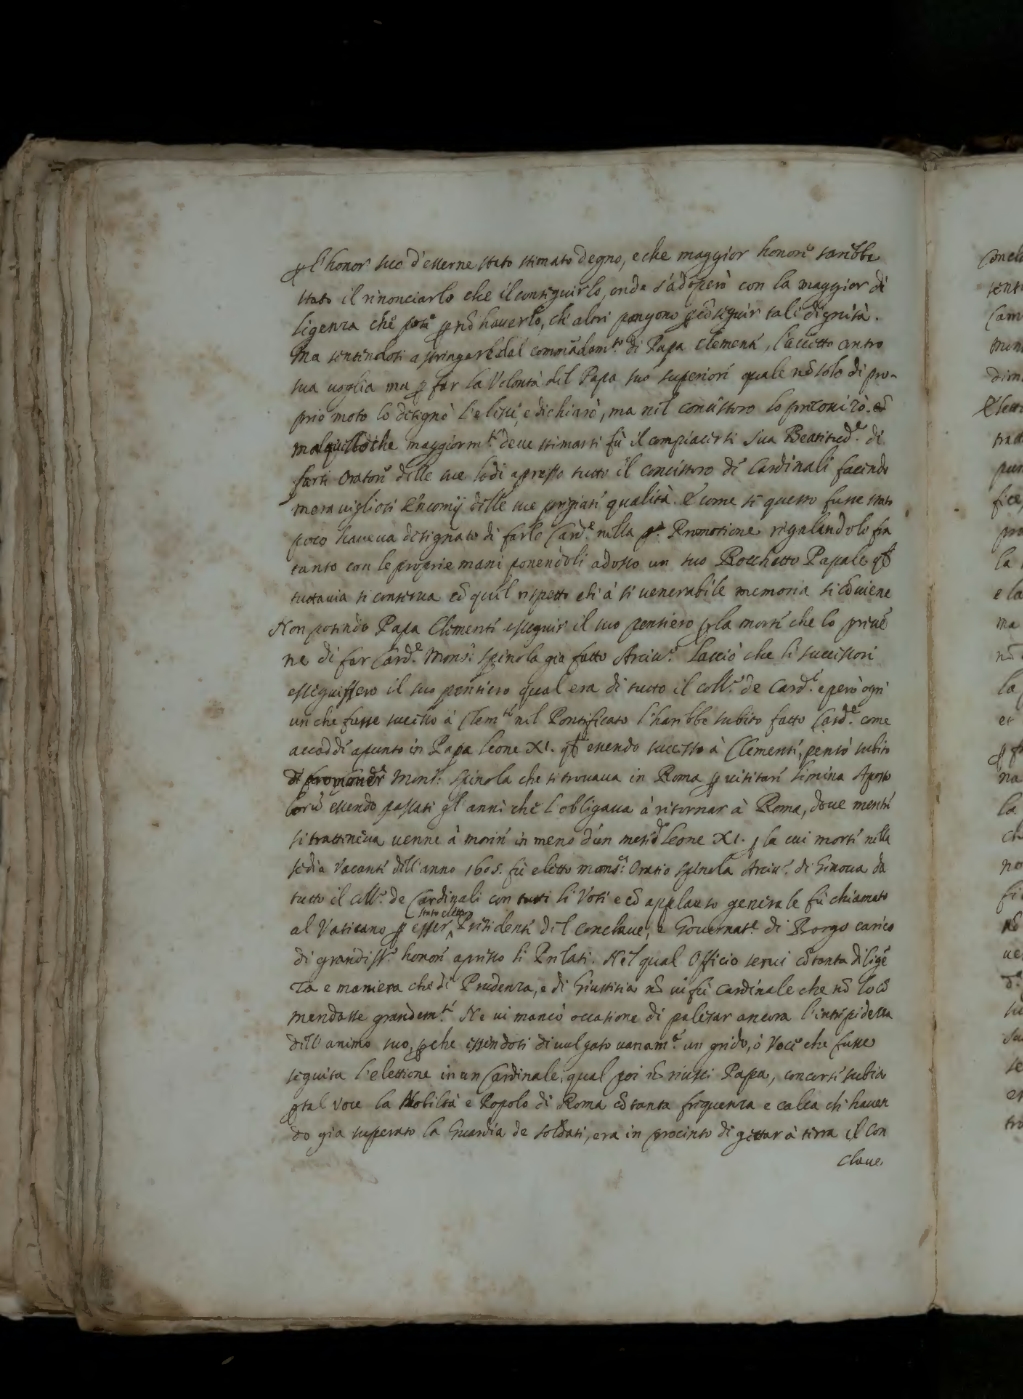 ꝑ l'honor suo d'esserne stato stimato degno, e che maggior honore sarebbe
stato il rinonciarlo che il conseguirlo, onde s'adoperò con la maggior di
ligenza che ꝑ nō haverlo, ch'altri pongono ꝑ cōseguir tali dignità.
Ma sentendosi astringere dal comādam.to di Papa Clemente, l'accettò contro
sua voglia ma ꝑ far la Volontà del Papa suo superiore quale nō solo di pro
prio moto lo designò l'elesse, e dichiarò, ma nel concistoro lo preconizò, et
maggiorm.te deve stimarsi fù il compiacersi Sua Beatitud.e di
farsi Oratore delle sue lodi apresso tutto il concistoro di Cardinali facendo
meravigliosi Encomij delle sue pregiate qualità. E come se questo fusse stato
poco haveva designato di farlo Card.e nella pa. Promotione, regalandolo fra
tanto con le proprie mani ponendoli adosso un suo Rocchetto Papale
tuttavia si conserva cō quel rispetto ch'à sì venerabile memoria si cōviene
Non potendo Papa Clemente esseguir il suo pensiero ꝑ la morte che lo prevē
ne di far Card.e Mons.r Spinola già fatto Arciv.o lasciò che li successori
esseguissero il suo pensiero qual era di tutto il Coll.o de Card.i e però ogn'
un che fusse successo à Clem.te nel Pontificato l'harebbe subito fatto Card.e come
accadde apunto in Papa Leone XI. essendo successo à Clemente, pensò subito
Mons.r Spinola che si trovava in Roma ꝑ visitare limina Aposto
lorū essendo passati gl'anni che l'obligava à ritornar à Roma, dove mentre
si tratteneva venne à morire in meno d'un mese Leone XI. ꝑ la cui morte nella
sedia Vacante dell'anno 1605. fù eletto Mons.r Oratio Spinola Arciv.o di Genova da
tutto il Coll.o de Cardinali con tutti li Voti e cō applauso generale fù chiamato
al Vaticano ꝑ esser stato eletto Presidente del Conclave, e Governat.e di Borgo carico
di grandiss.o honore apresso li Prelati. Nel qual Officio servì cō tanta diligē
za e maniera che di Prudenza, e di Giustitia nō vi fù Cardinale che nō lo cō
mendasse grandem.te Ne vi mancò occasione di palesar ancora l'intrepidezza
dell'animo suo, ꝑche essendosi divulgato vanam.te un grido, ò Voce che fusse
seguita l'elettione in un Cardinale, qual poi nō riuscì Papa, concorse subito
ꝑ tal Voce la Nobiltà e Popolo di Roma cō tanta frequenza e calca ch'haven
do già superato la Guardia de soldati, era in procinto di gettar à terra il Con
clave.